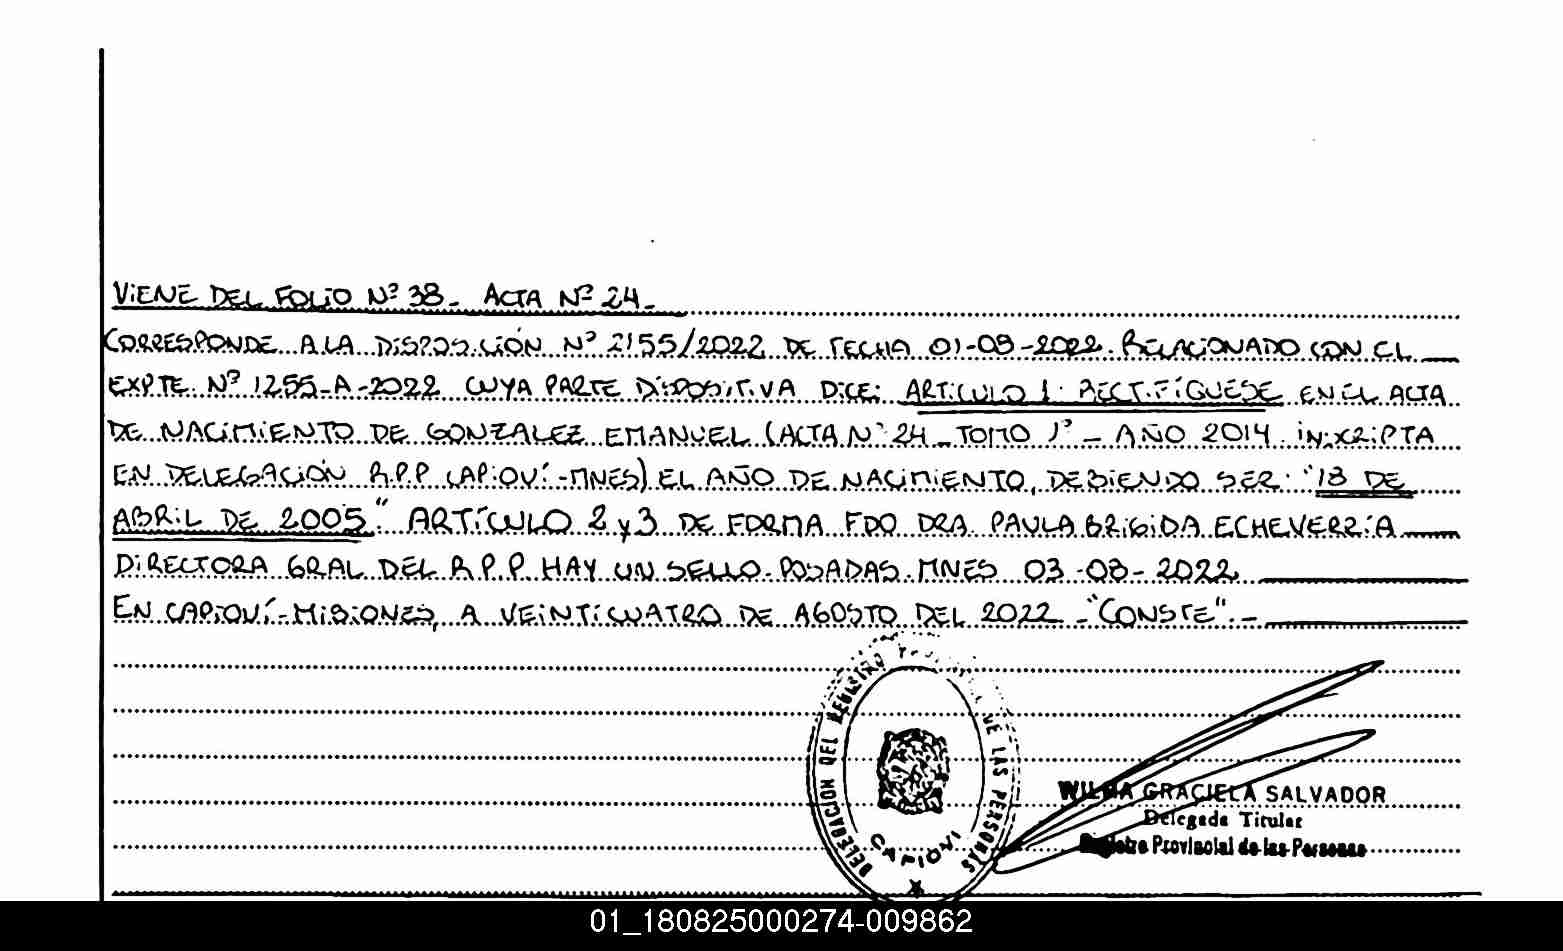 VIENE DEL FOLIO Nº 38- ACTA Nº 24-
CORRESPONDE A LA DISPOSICIÓN Nº 2155/2022 DE FECHA 01-08-2022. RELACIONADO CON EL
EXPTE. Nº 1255-A-2022 CUYA PARTE DISPOSITIVA DICE: ARTICULO 1: RECTIFÍQUESE EN EL ACTA
DE NACIMIENTO DE GONZALEZ EMANUEL (ACTA Nº 24 - TOMO 1º - AÑO 2014. INSCRIPTA
EN DELEGACIÓN R.P.P CAPIOVÍ-MNES) EL AÑO DE NACIMIENTO, DEBIENDO SER: "18 DE
ABRIL DE 2005". ARTÍCULO 2 y 3 DE FORMA FDO DRA. PAULA BRIGIDA ECHEVERRÍA
DIRECTORA GRAL DEL R.P.P. HAY UN SELLO. POSADAS. MNES 03-08-2022
EN CAPIOVÍ-MISIONES, A VEINTICUATRO DE AGOSTO DEL 2022 - "CONSTE".-
DELEGACION DEL REGISTRO DE LAS PERSONAS
CAPIOVI
WILMA GRACIELA SALVADOR
Delegada Titular
Registro Provincial de las Personas
01_180825000274-009862